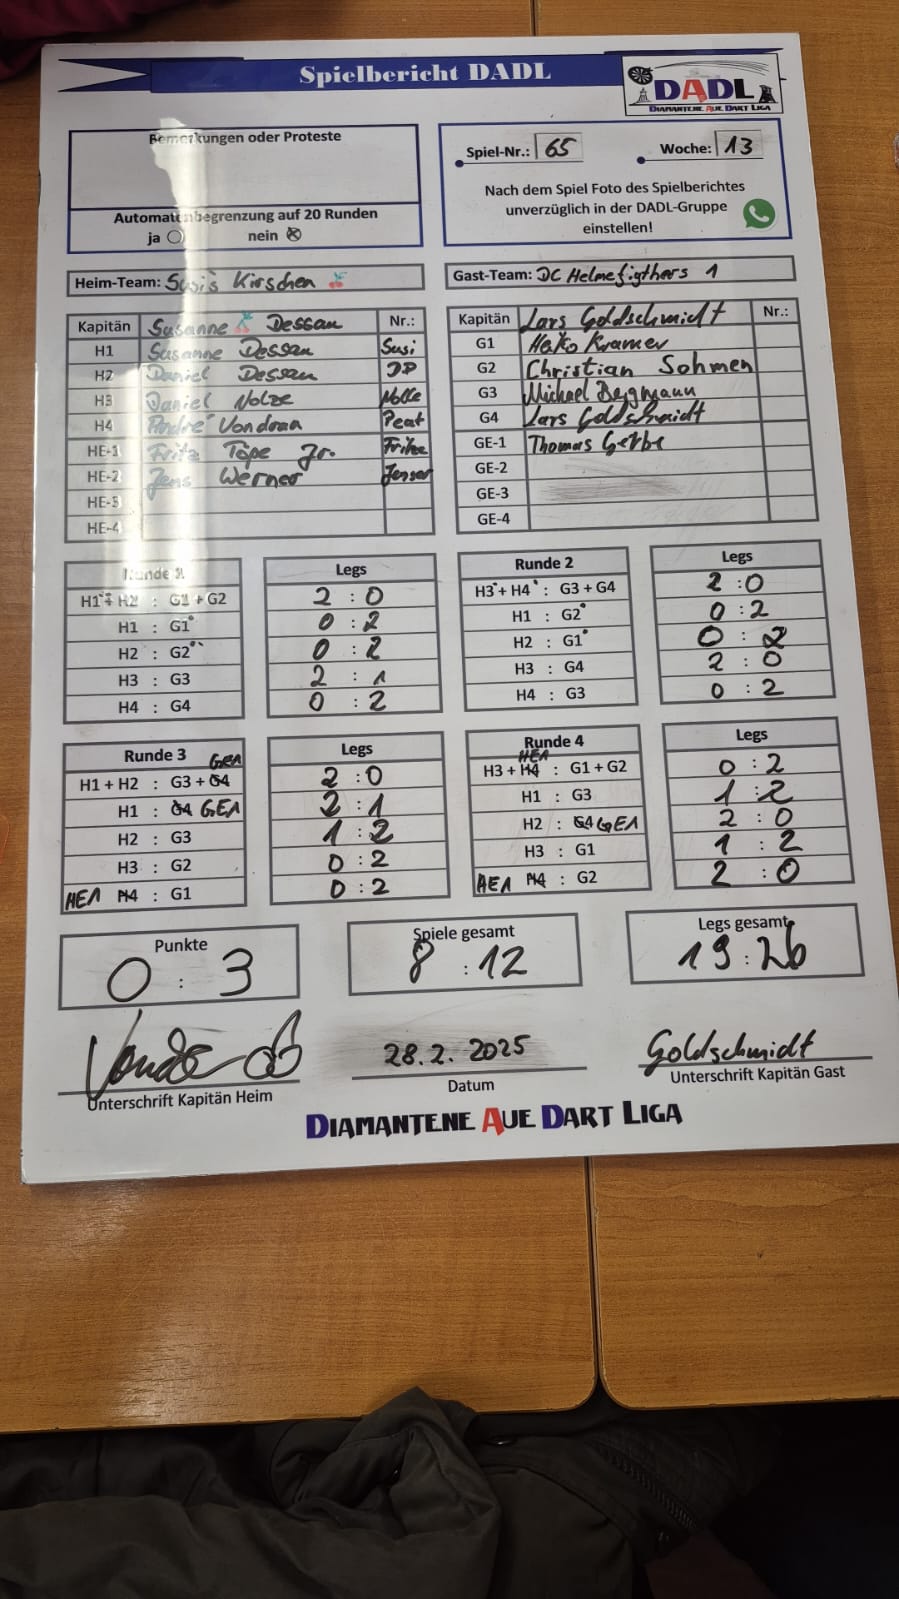 Spielbericht DADL
DADL
DIAMANTENE AUE DART LIGA
Bemerkungen oder Proteste
Automatenbegrenzung auf 20 Runden
ja nein
Spiel-Nr.: 65 Woche: 13
Nach dem Spiel Foto des Spielberichtes
unverzüglich in der DADL-Gruppe
einstellen!
Heim-Team: Susi's Kirschen
Kapitän Susanne Dessau Nr.:
H1 Susanne Dessau Susi
H2 Daniel Dessau DD
H3 Daniel Nolze Nolle
H4 André Vondran Peat
HE-1 Fritz Töpe Jr. Fritze
HE-2 Jens Werner Jenser
HE-3
HE-4
Gast-Team: DC Helmefigthers 1
Kapitän Lars Goldschmidt Nr.:
G1 Heiko Kramer
G2 Christian Sohmen
G3 Michael Bergmann
G4 Lars Goldschmidt
GE-1 Thomas Gerbe
GE-2
GE-3
GE-4
Runde 1 Legs
H1 + H2 : G1 + G2 2 : 0
H1 : G1 0 : 2
H2 : G2 0 : 2
H3 : G3 2 : 1
H4 : G4 0 : 2
Runde 2 Legs
H3 + H4 : G3 + G4 2 : 0
H1 : G2 0 : 2
H2 : G1 0 : 2
H3 : G4 2 : 0
H4 : G3 0 : 2
Runde 3 Legs
GE1
H1 + H2 : G3 + G4 2 : 0
H1 : G4 GE1 2 : 1
H2 : G3 1 : 2
H3 : G2 0 : 2
HE1 H4 : G1 0 : 2
Runde 4 Legs
HE1
H3 + H4 : G1 + G2 0 : 2
H1 : G3 1 : 2
H2 : G4 GE1 2 : 0
H3 : G1 1 : 2
HE1 H4 : G2 2 : 0
Punkte
0 : 3
Spiele gesamt
8 : 12
Legs gesamt
19 : 26
Unterschrift Kapitän Heim
28.2.2025
Datum
Goldschmidt
Unterschrift Kapitän Gast
DIAMANTENE AUE DART LIGA